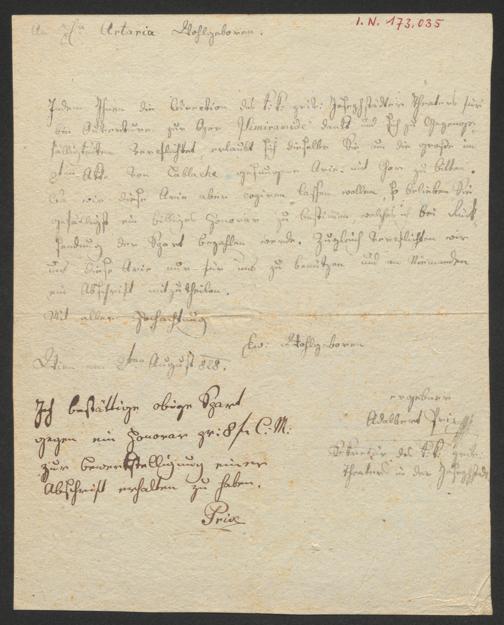 I.N. 173.035
An H. Artaria Wohlgeboren.
Indem Ihnen die Direction des k.k. priv: Josephstädter Theaters für
die Ouverture zur Oper Semiramide dankt und sich zu Gegenge-
fälligkeiten verpflichtet, erlaubt sich dieselbe Sie um die große im
2ten Akt. von Lablache gesungene Arie mit Chor zu bitten.
Da wir diese Arie aber copiren lassen wollen, so belieben Sie
gefälligst ein billiges Honorar zu bestimen welches bei Rück-
sendung der Spart bezahlen werde. Zugleich verpflichten wir
uns diese Arie nur für uns zu benützen und an Niemanden
eine Abschrift mitzutheilen.
Mit aller Hochachtung
Euer Wohlgeboren
Wien am ten August 828.
ergebener
Adalbert Prix
Sekretär des k.k. priv:
Theaters in der Josephstadt
Ich bestättige obige Spart
gegen ein Honorar pr: 8 f C.M:
zur Bewerkstelligung einer
Abschrift erhalten zu haben.
Prix